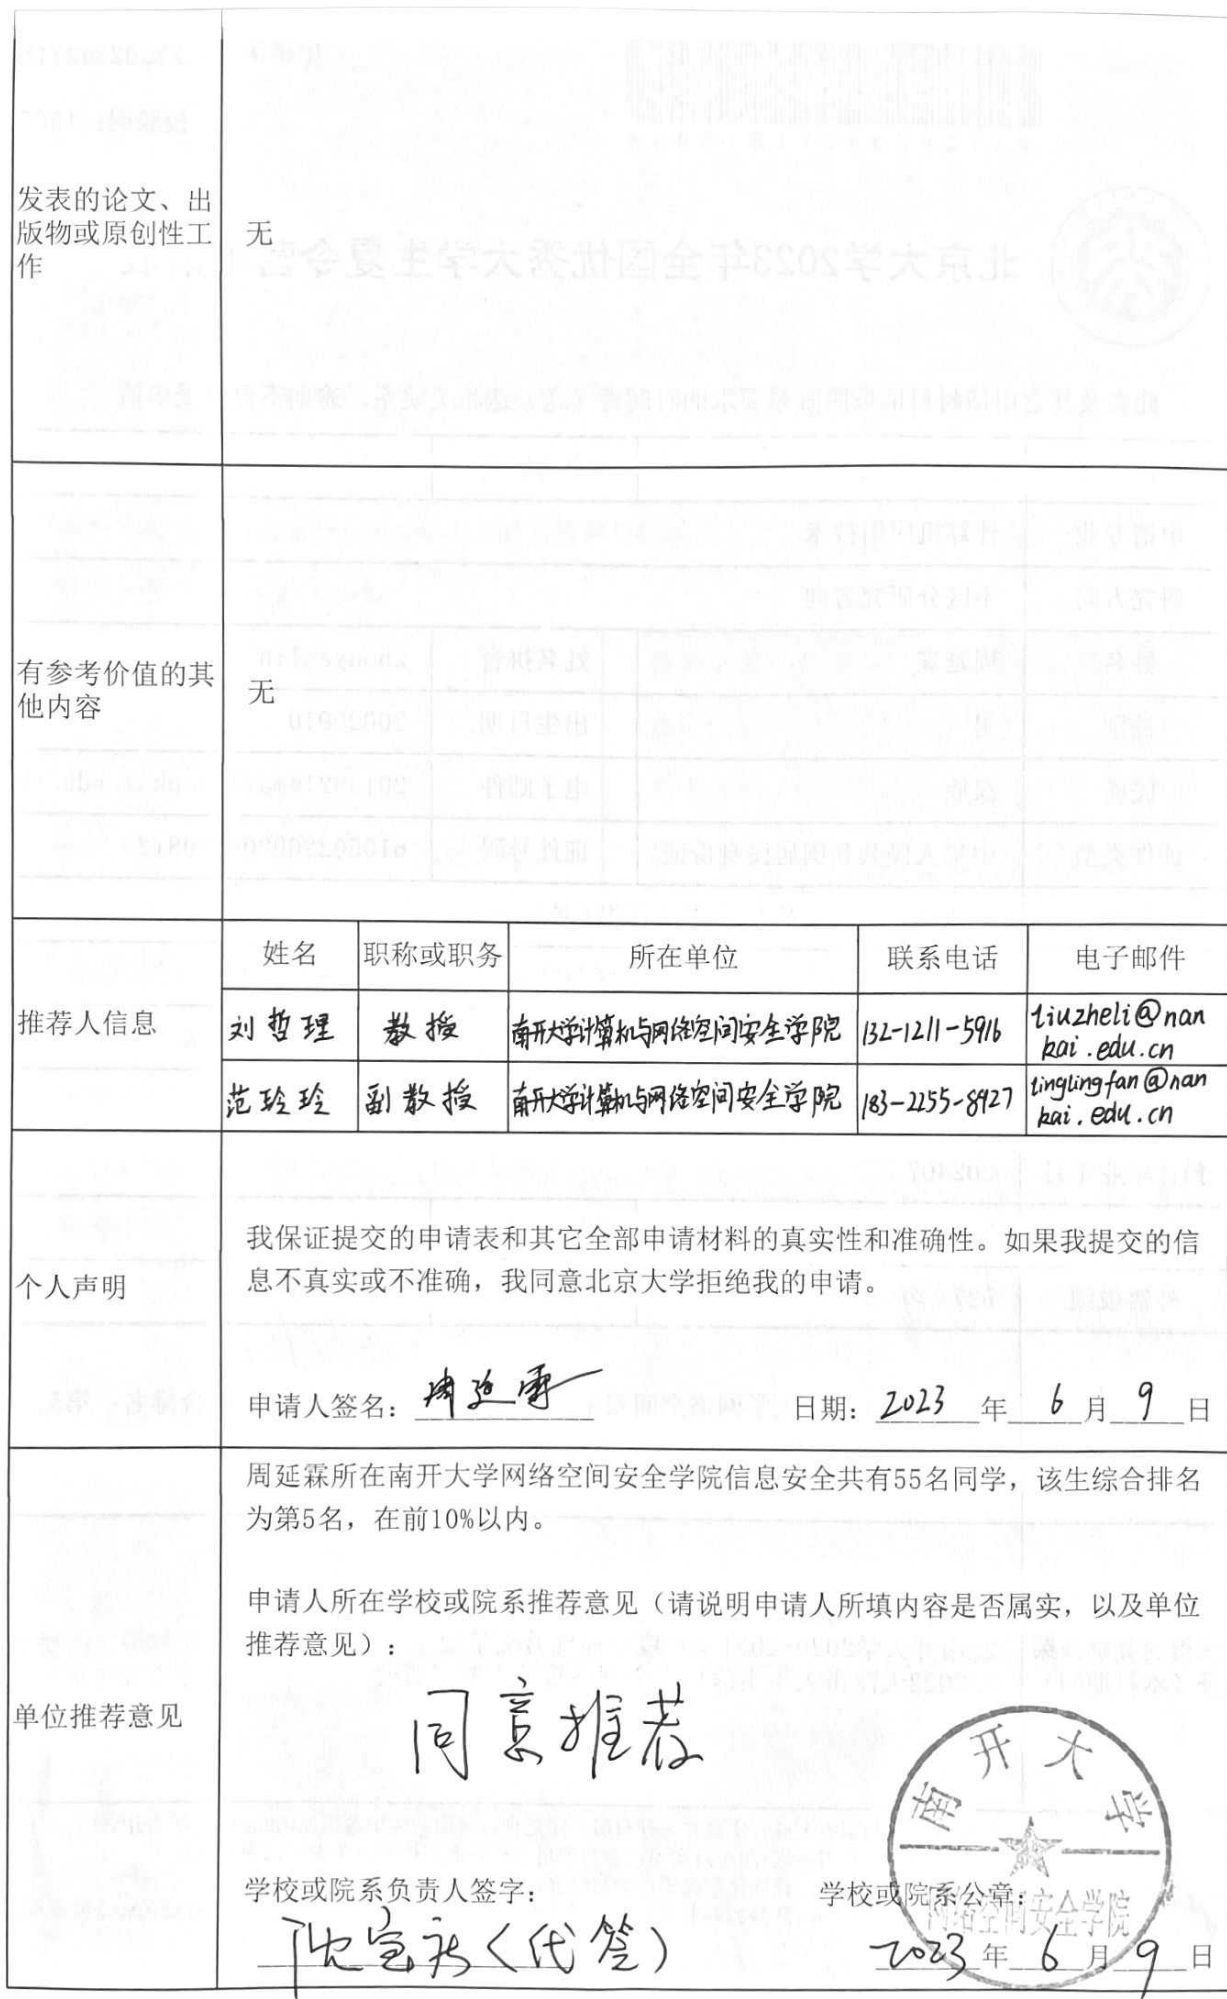 发表的论文、出
版物或原创性工
作
无
北京大学2023年全国优秀大学生夏令营
有参考价值的其
他内容
无
推荐人信息
姓名 职称或职务 所在单位 联系电话 电子邮件
刘哲理 教授 南开大学计算机与网络空间安全学院 132-1211-5916 liuzheli@nan
kai.edu.cn
范玲玲 副教授 南开大学计算机与网络空间安全学院 183-2255-8927 linglingfan@nan
kai.edu.cn
个人声明
我保证提交的申请表和其它全部申请材料的真实性和准确性。如果我提交的信
息不真实或不准确，我同意北京大学拒绝我的申请。
申请人签名：周延霖 日期：2023年6月9日
单位推荐意见
周延霖所在南开大学网络空间安全学院信息安全共有55名同学，该生综合排名
为第5名，在前10%以内。
申请人所在学校或院系推荐意见（请说明申请人所填内容是否属实，以及单位
推荐意见）：
同意推荐
南开大学
学校或院系负责人签字： 学校或院系公章：
网络空间安全学院
（代签） 2023年6月9日